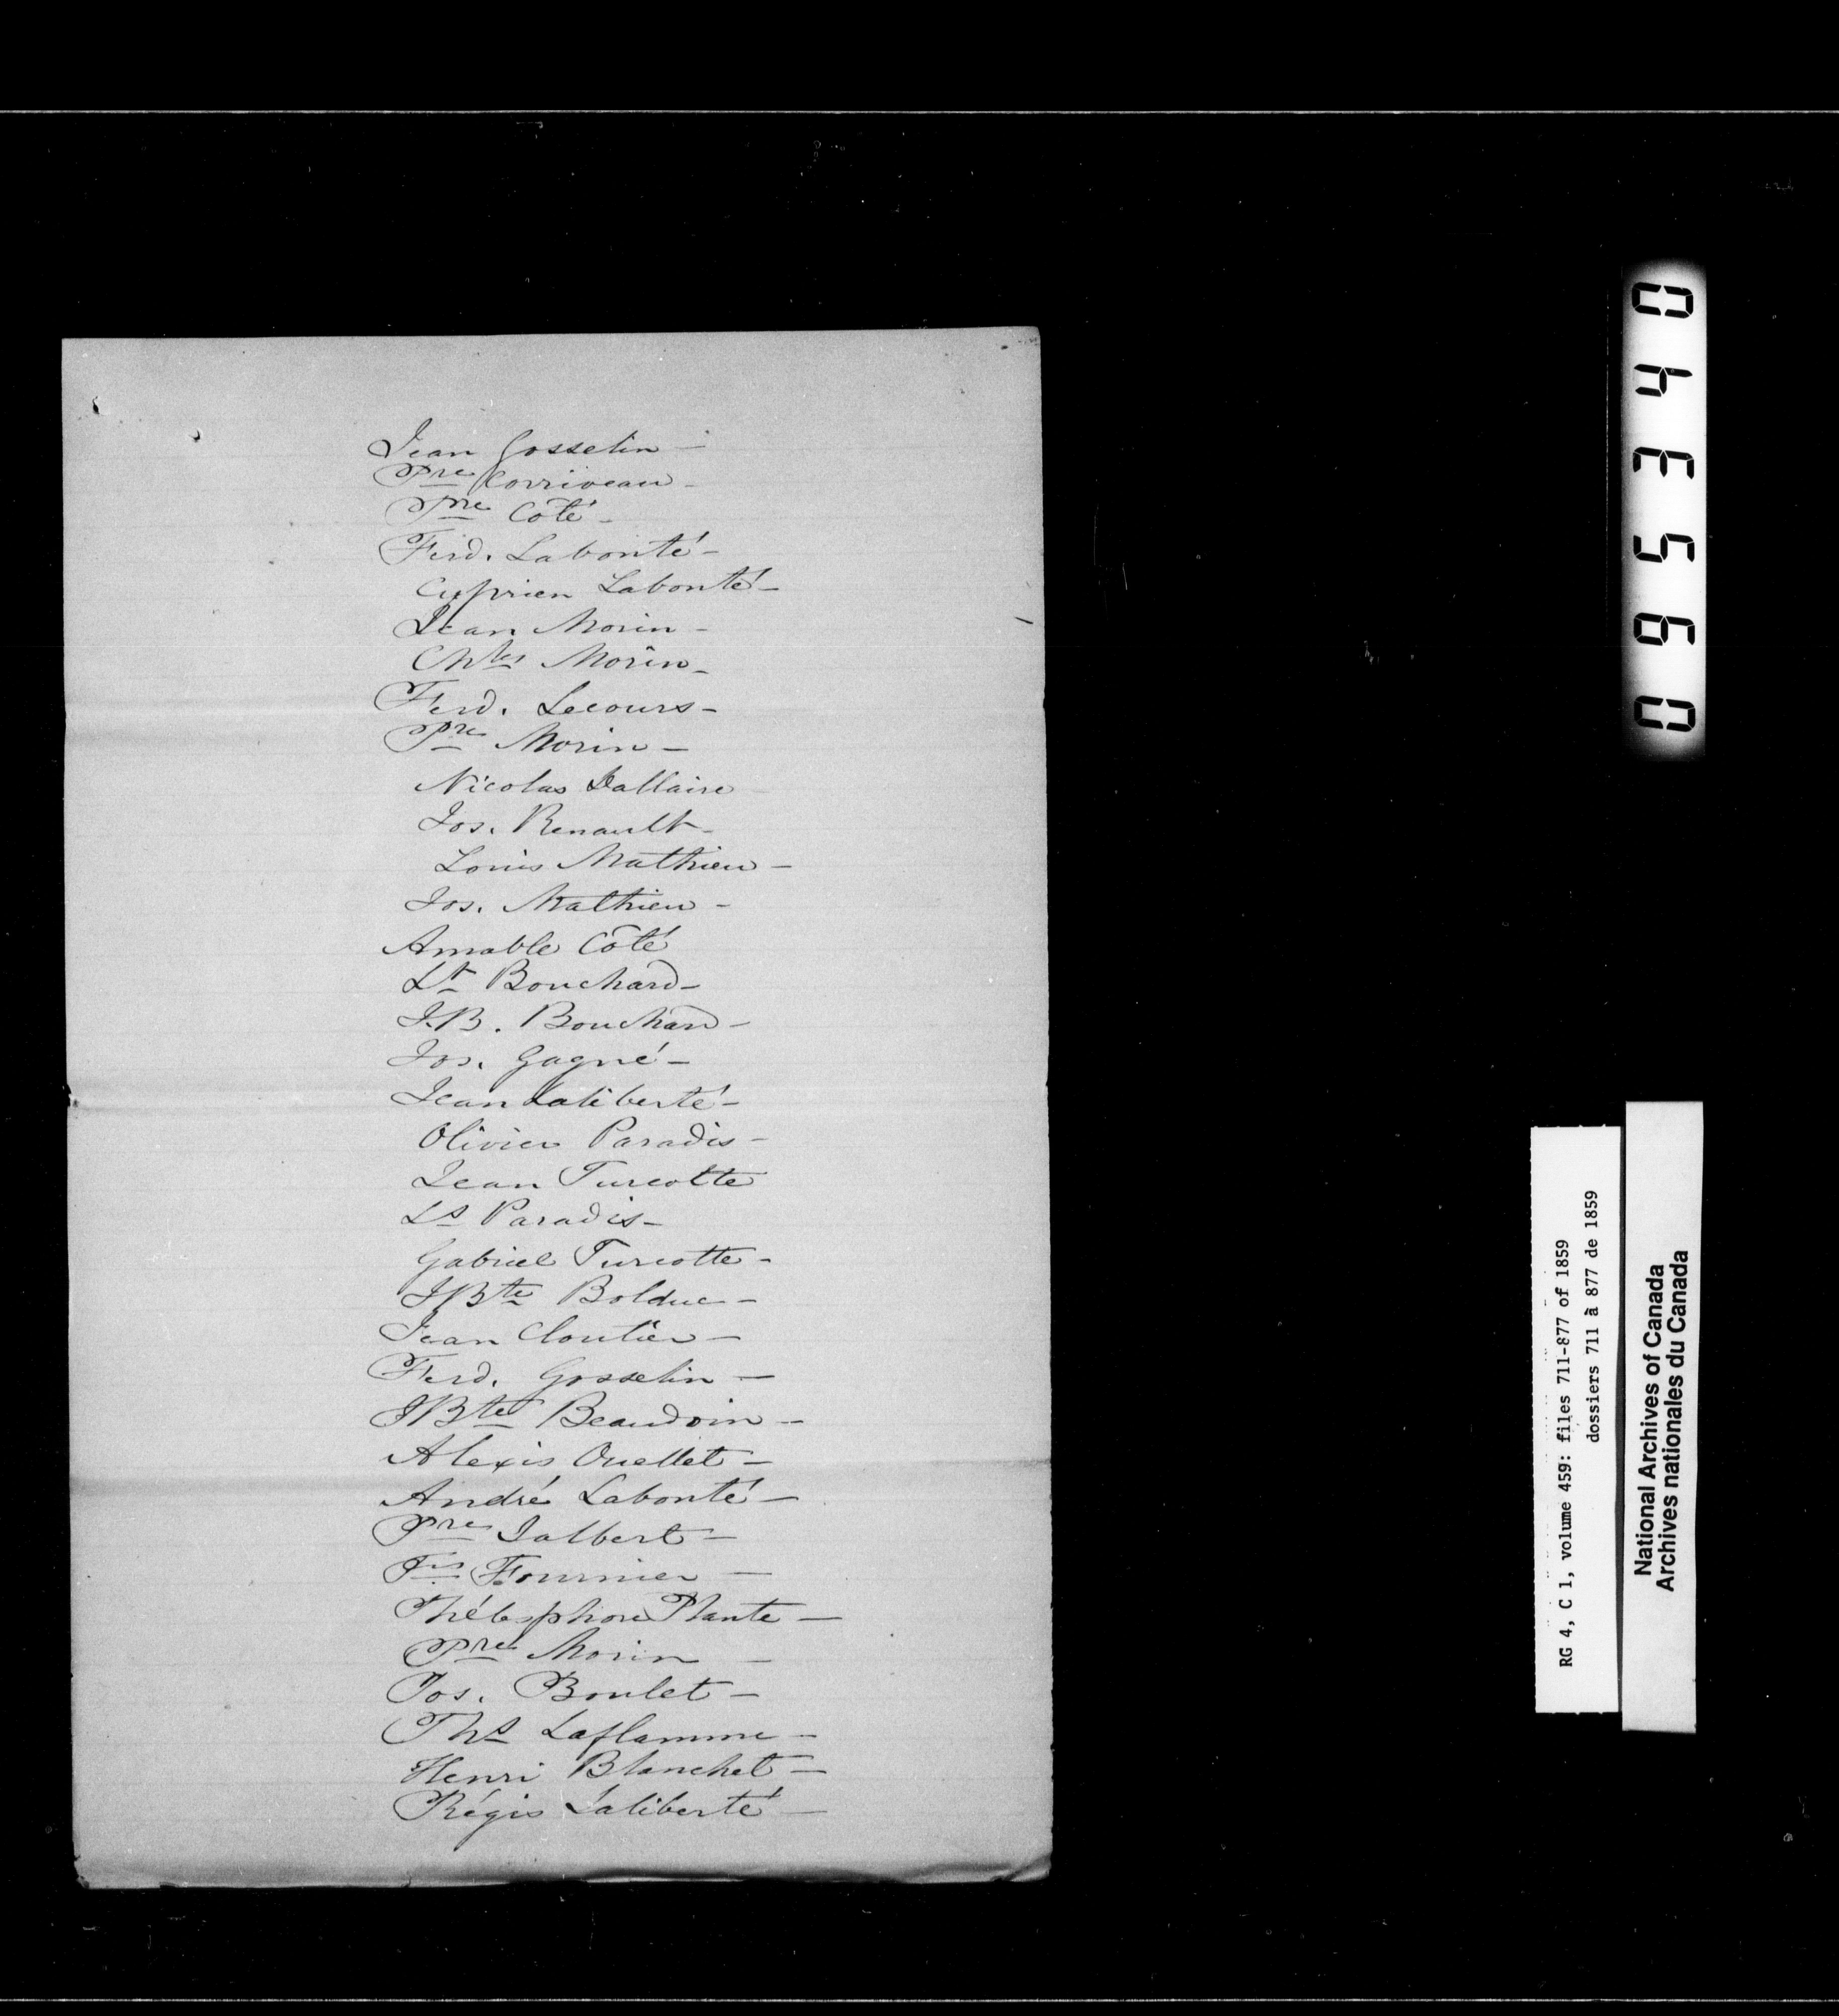 Jean Gosselin –
Pre Corriveau –
Pre Côté –
Ferd. Labonté –
Cyprien Labonté –
Jean Morin –
Chles Morin –
Ferd. Lecours –
Pre Morin –
Nicolas Dallaire
Jos. Renault –
Louis Mathieu –
Jos. Mathieu –
Amable Côté
Lt Bouchard –
J.B. Bouchard –
Jos. Gagné –
Jean Laliberté –
Olivier Paradis –
Jean Turcotte
Ls Paradis –
Gabriel Turcotte –
JBte Bolduc –
Jean Cloutier –
Ferd. Gosselin –
JBte Beaudoin –
Alexis Ouellet –
André Labonté –
Pre Jalbert –
Fis Fournier –
Thélesphore Plante –
Pre Morin –
Jos. Boulet –
Ths Laflamme –
Henri Blanchet –
Régis Laliberté –
095340
RG 4, C 1, volume 459: files 711-877 of 1859
dossiers 711 à 877 de 1859
National Archives of Canada
Archives nationales du Canada